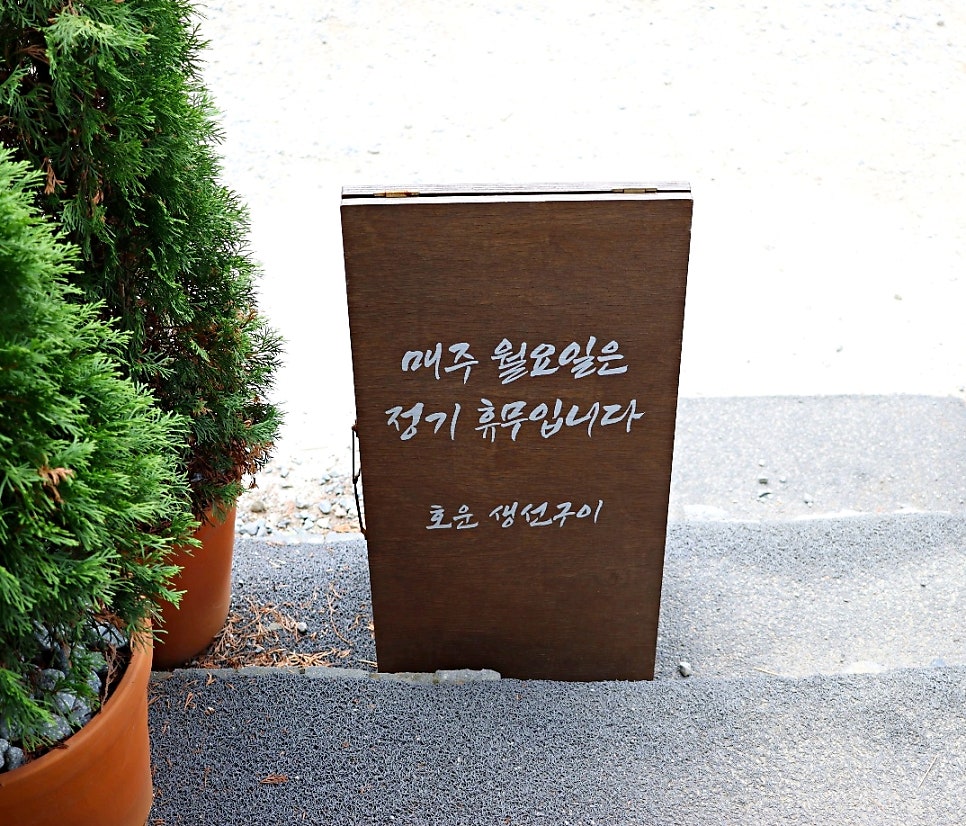 매주 월요일은
정기 휴무입니다
호운 생선구이